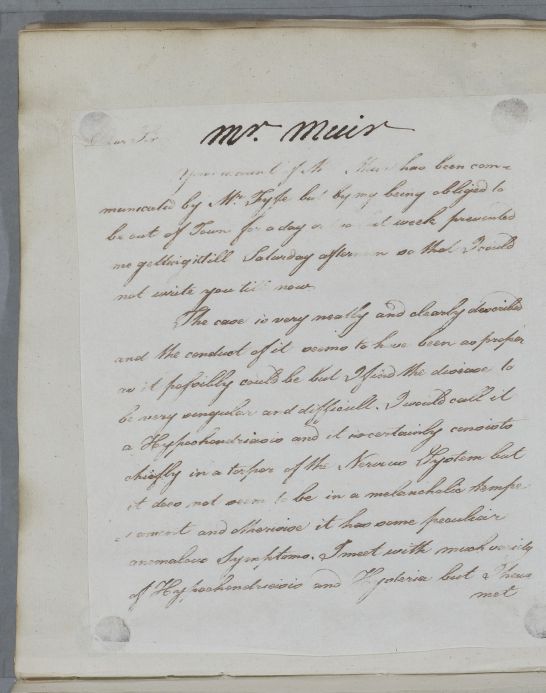 Dear Sir
Mr. Muir
Your account of Mr Muir has been com=
municated by Mr Fyffe but by my being obliged to
be out of Town for a day or two last week prevented
me getting it till Saturday afternoon so that I could
not write you till now
The case is very neatly and clearly described
and the conduct of it seems to have been as proper
as it possibly could be but I find the disease to
be very singular and difficult. I would call it
a Hypochondriasis and it certainly consists
chiefly in a torpor of the Nervous System but
it does not seem to be in a melancholic tempe
=rament and otherwise it has some peculiar
anomalous Symptoms. I meet with much variety
of Hypochondriasis and Hysteria but I have
met